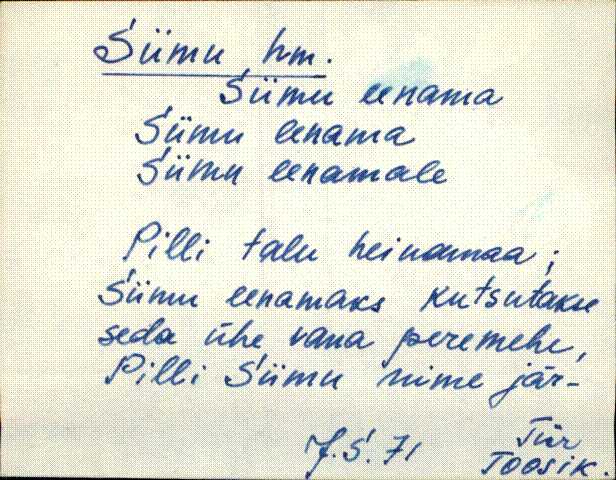 Śiimu hm.
Śiimu eenama
Śiimu eenama
Śiimu eenamale
Pilli talu heinamaa;
Śiimu eenamaks kutsutakse
seda ühe vana peremehe,
Pilli Śiimu nime jär-
J.S. 71
Tür
Toosik.